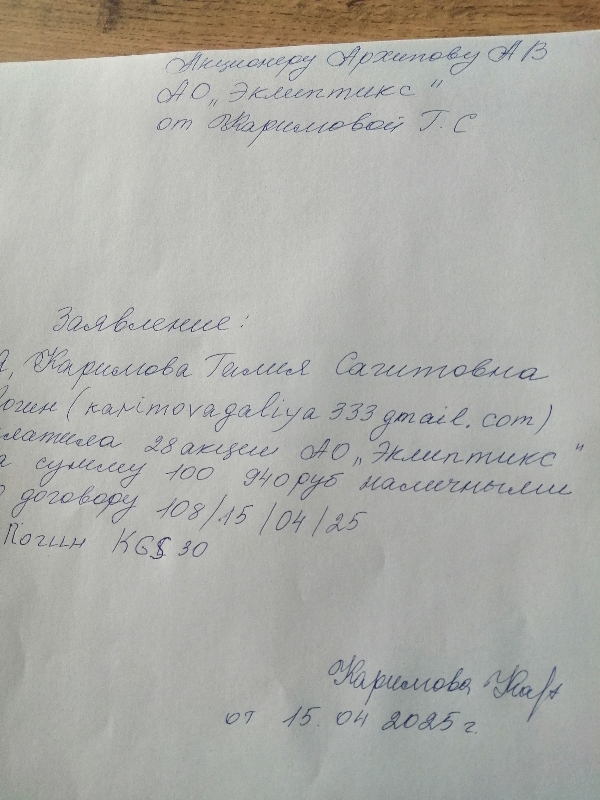 Акционеру Архипову АВ
АО „Эклиптикс"
от Каримовой Г. С
Заявление:
Каримова Галия Сагитовна
огин (karimovagaliya 333 gmail. com)
латила 28 акции АО „Эклиптикс"
а сумму 100 940 руб наличными
договору 108/15/04/25
Логин KGS 30
Каримова
от 15. 04 2025 г.